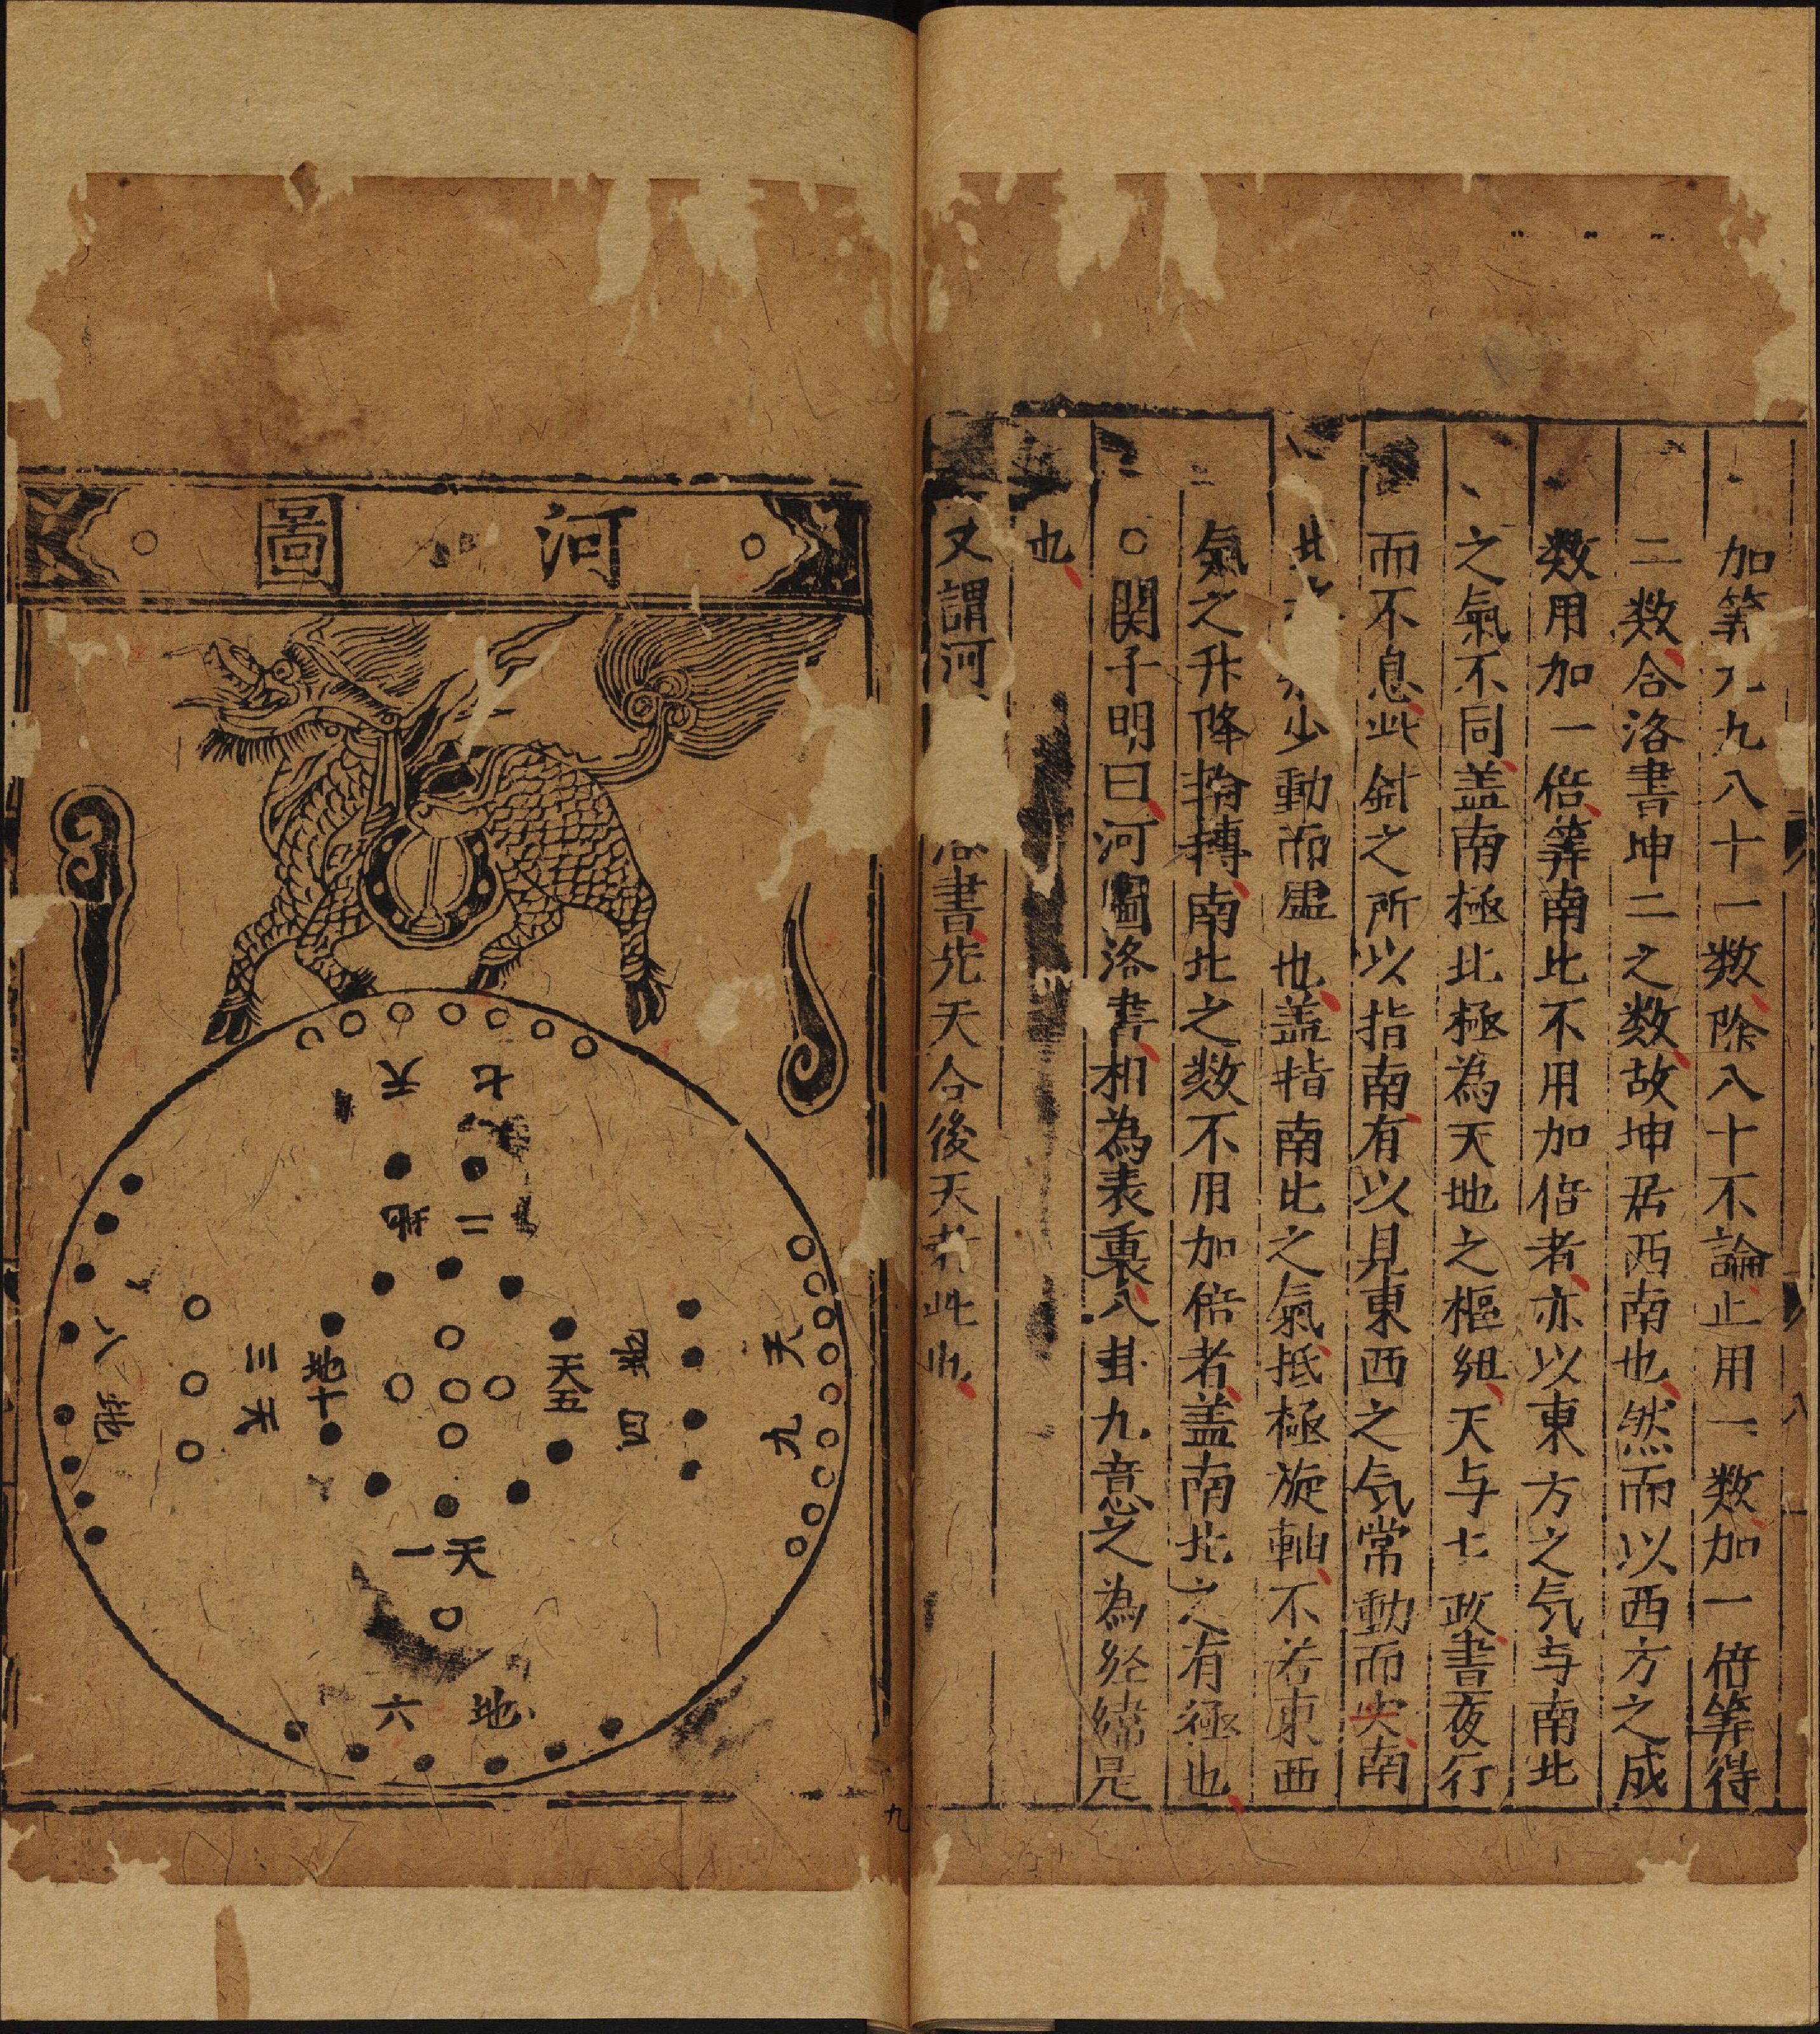 加筭九九八十一数除八十不論止用一数加一倍筭得
二数合洛書坤二之数故坤居西南也然而以西方之成
数用加一倍筭南北不用加倍者亦以東方之气与南北
之氣不同盖南極北極為天地之樞紐天与七政晝夜行
而不息此針之所以指南有以見東西之气常動而尖南
北少動而盡也盖指南北之氣抵極旋軸不若東西
氣之升降輪轉南北之数不用加倍者盖南北之有極也
○関子明曰河圖洛書相為表裏八卦九意之為经緯是
也
又謂河書先天合後天若此也
八
河圖
天七
地二
天九
地四
天五
地十
天三
地八
天一
地六
九